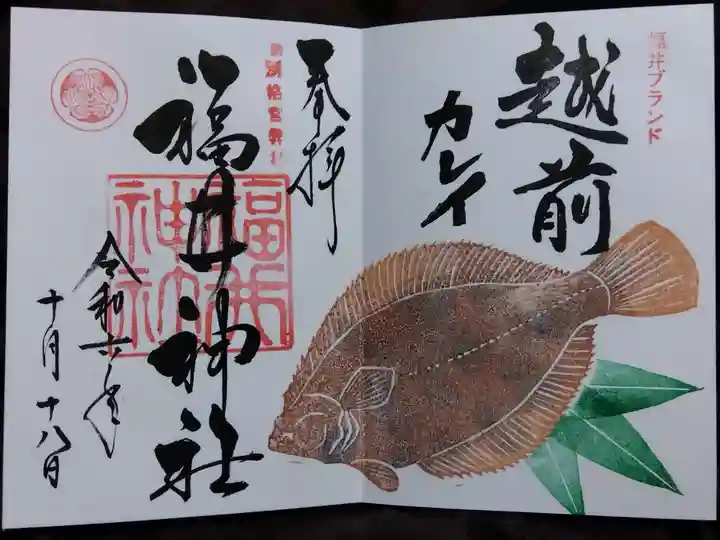 福井ブランド
越前
カレイ
奉拝
別格官幣社
福井神社
福井
神社
令和六年
十月十八日